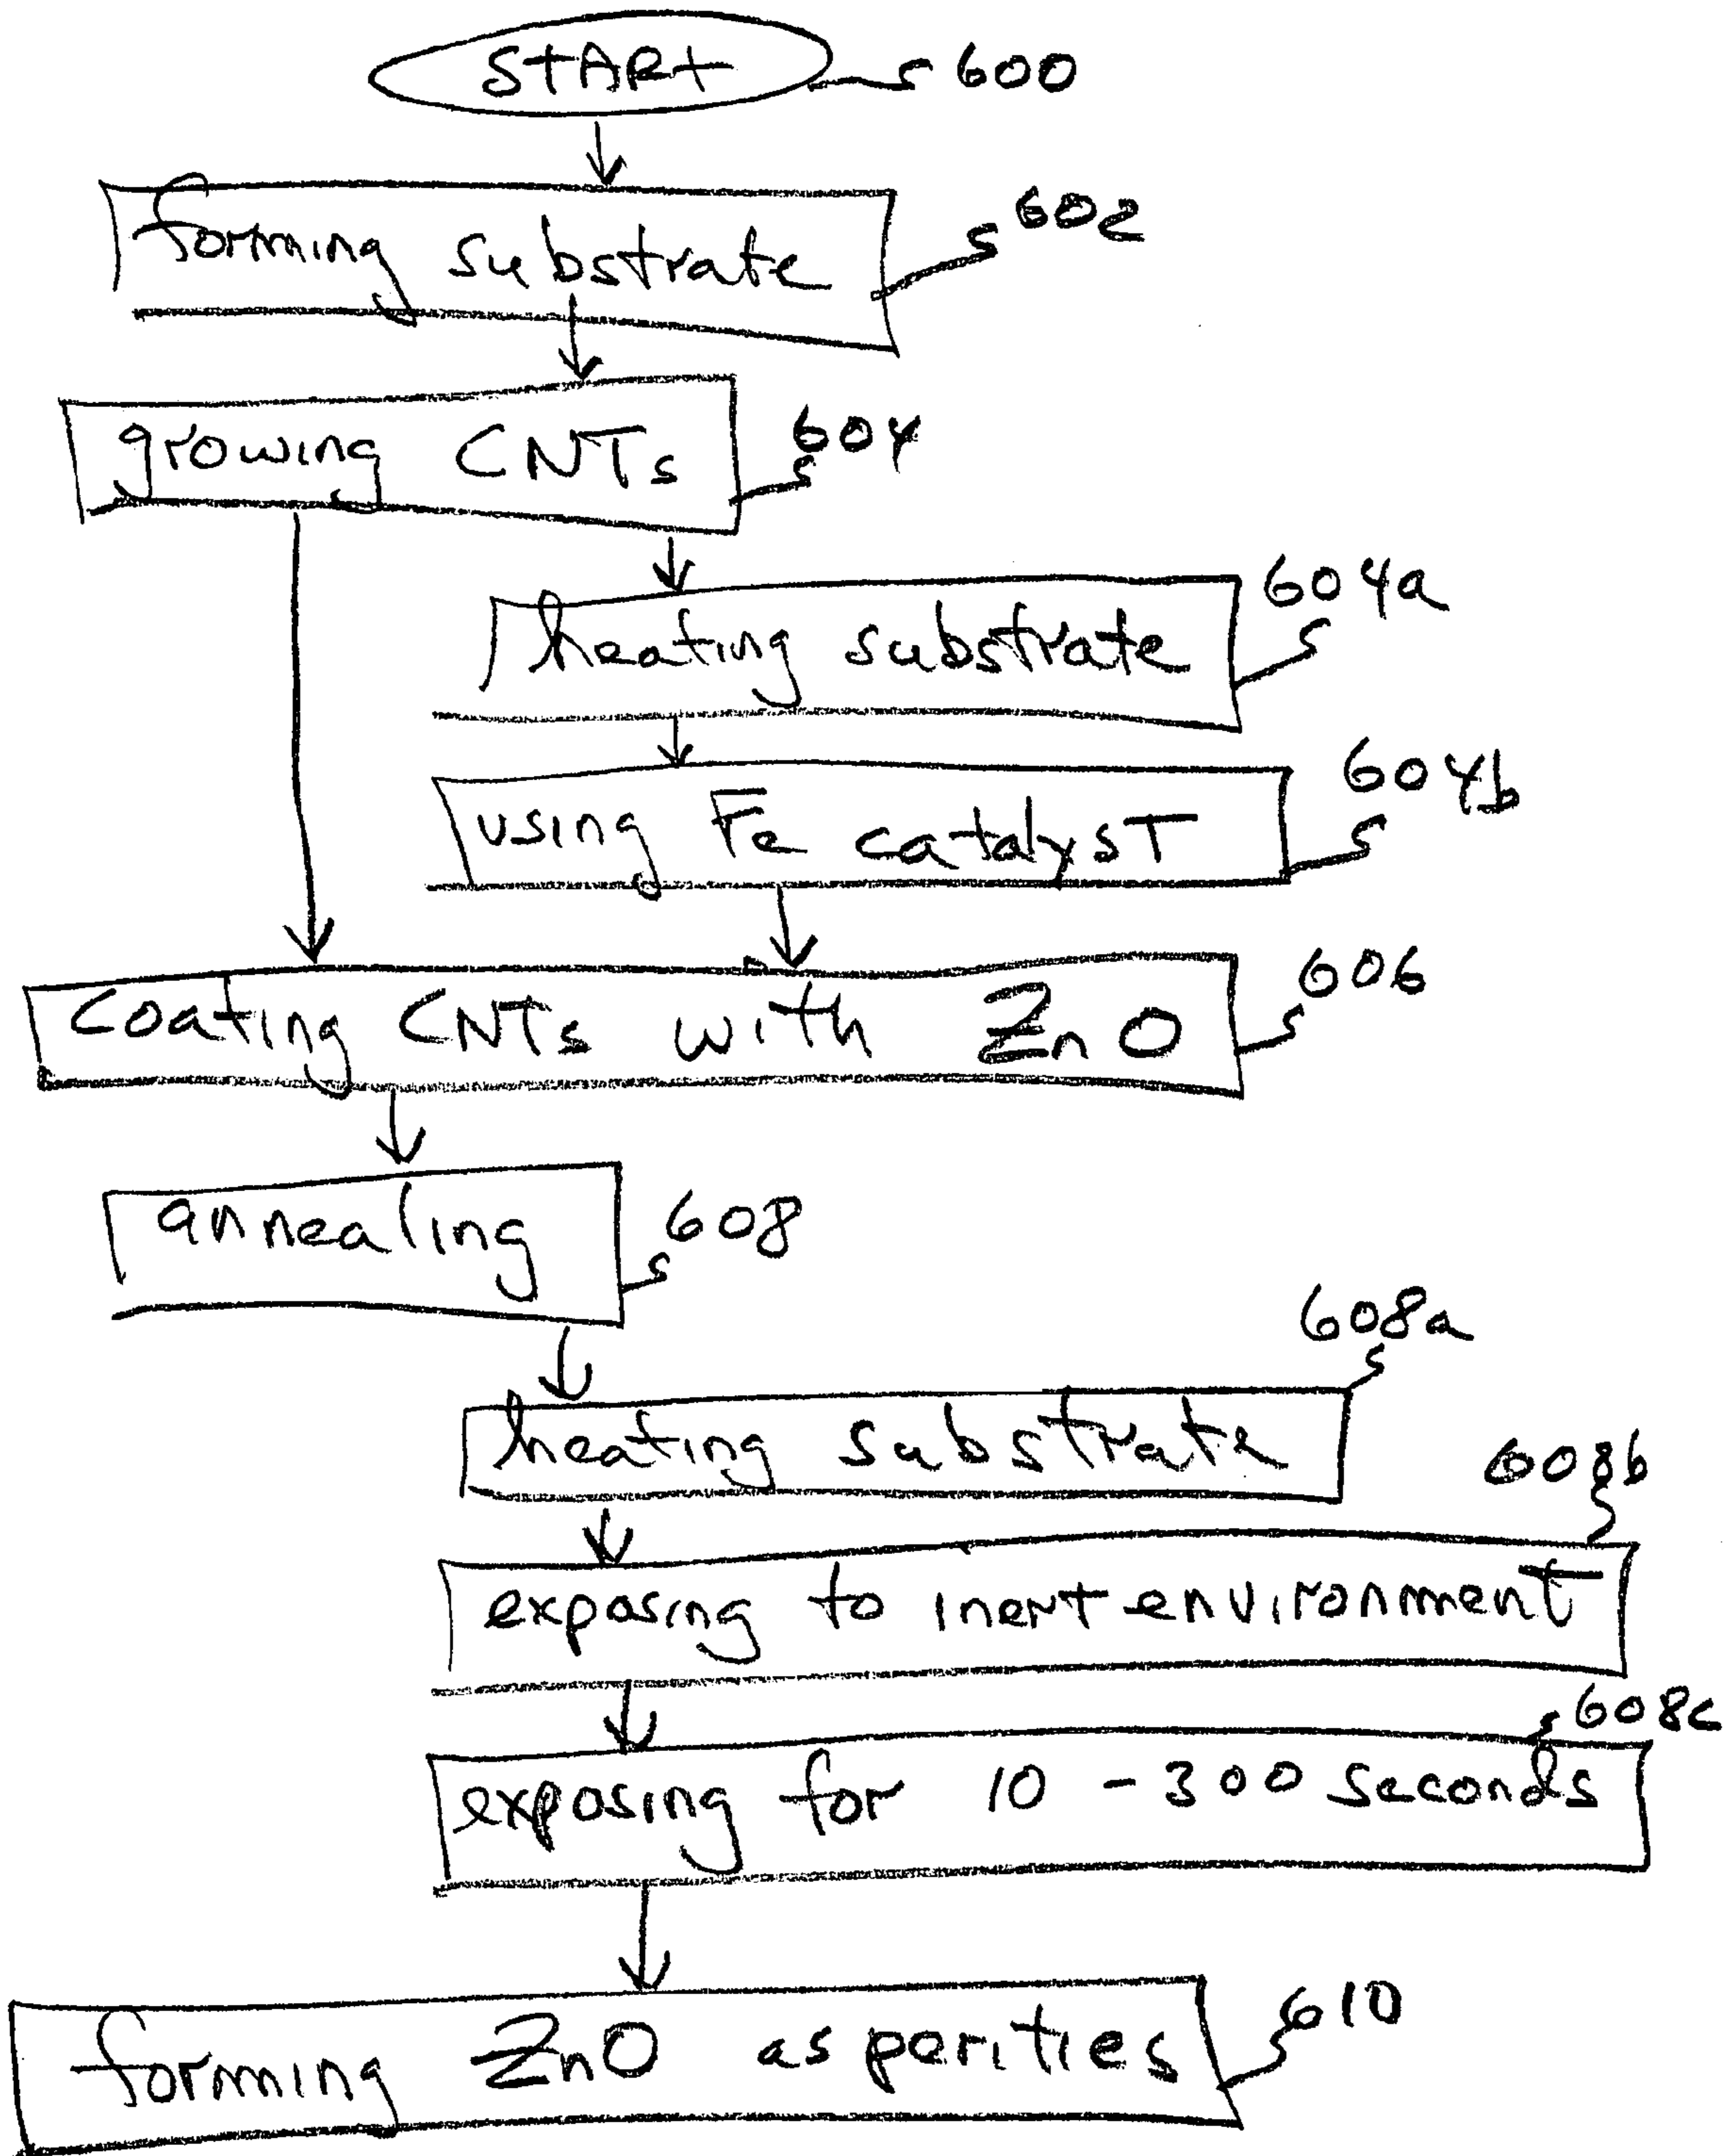 START 600
forming substrate 602
growing CNTs 604
heating substrate 604a
using Fe catalyst 604b
coating CNTs with ZnO 606
annealing 608
608a
heating substrate
608b
exposing to inert environment
608c
exposing for 10 - 300 seconds
forming ZnO asperities 610